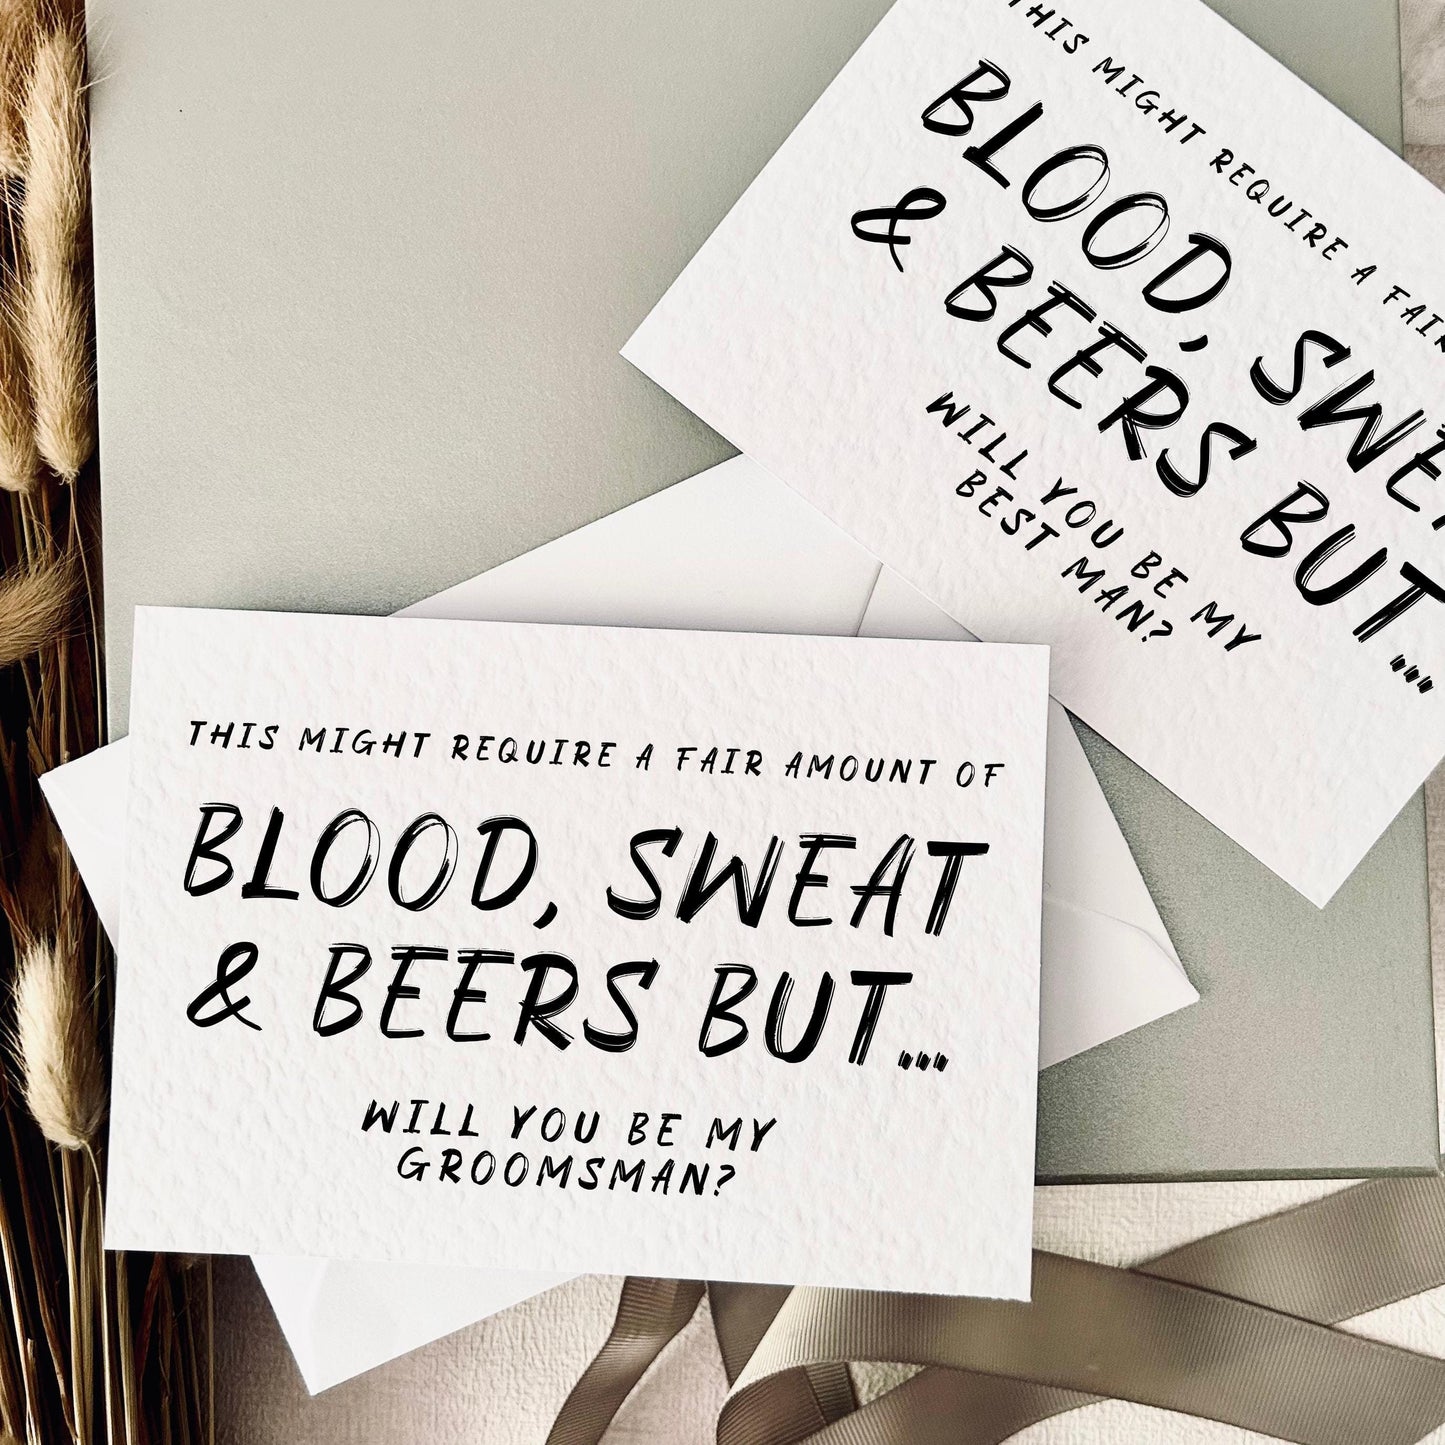 THIS MIGHT REQUIRE A FAIR
BLOOD, SWE
& BEERS BUT...
WILL YOU BE MY
BEST MAN?
THIS MIGHT REQUIRE A FAIR AMOUNT OF
BLOOD, SWEAT
& BEERS BUT...
WILL YOU BE MY
GROOMSMAN?